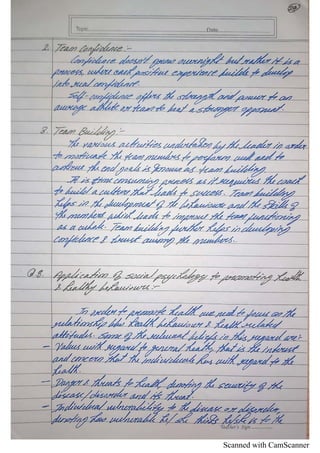 Topic
Date
2. Team Confidence :-
Confidence doesn't grow overnight but rather it is a
process, where each positive experience builds to develop
into real confidence.
Self-confidence offers the strength and power to an
average athlete or team to beat a stronger opponent.
3. Team Building :-
The various activities undertaken by the leader in order
to motivate the team members to perform well and to
achieve the end goals is known as team building.
It is a time consuming process as it requires the coach
to build a culture that leads to success. Team building
helps in the development of the behaviour and the skills of
the members which leads to improve the team functioning
as a whole. Team building further helps in developing
confidence & trust among the members.
Q 8. Application of social psychology to promoting health
& healthy behaviours :-
In order to promote health we need to focus on the
relationship b/w health behaviour & health related
attitudes. Some of the relevant beliefs in this regard are:-
- Values with regard to general health, that is the interest
and concern that the individuals has with regard to the
health.
- Danger & threats to health denoting the severity of the
disease/disorder and its threat.
- Individual vulnerability to the disease or disorder,
denoting how vulnerable he/she thinks he/she is to the
Teacher's Sign
Scanned with CamScanner